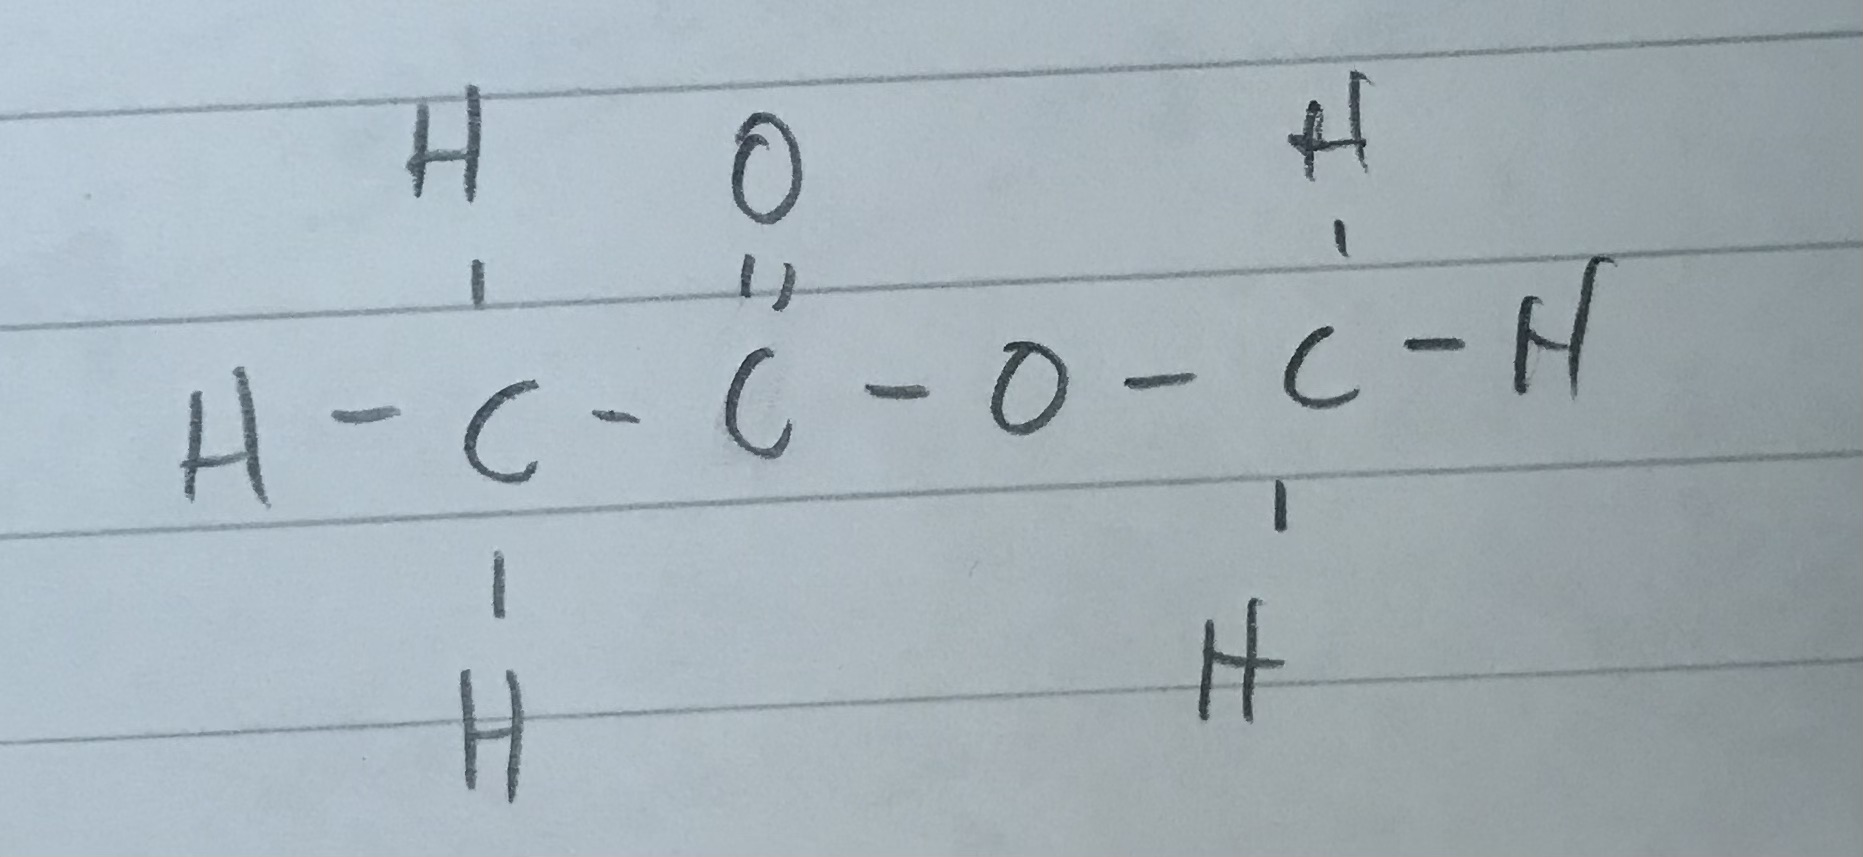 H O H
H - C - C - O - C - H
H H